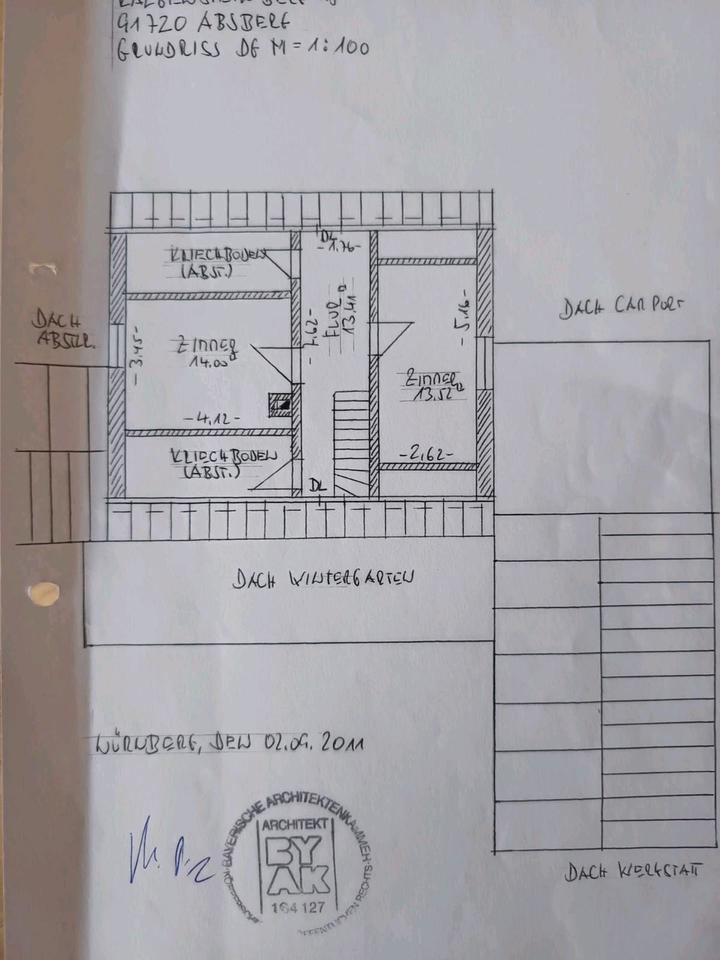 91720 ABSBERG
GRUNDRISS DG M = 1:100
DL
-1.76-
KRIECHBODEN
(ABST.)
FLUR
13.41
-7.62-
-5.16-
DACH CARPORT
DACH
ABSTLR.
-3.45-
ZIMMER
14.00
ZIMMER
13.52
-4.12-
KRIECHBODEN
(ABST.)
-2.62-
DL
DACH WINTERGARTEN
NÜRNBERG, DEN 02.09.2011
BAYERISCHE ARCHITEKTENKAMMER
ARCHITEKT
BY
AK
164 127
ÖFFENTLICHEN RECHTS
DACH WERKSTATT